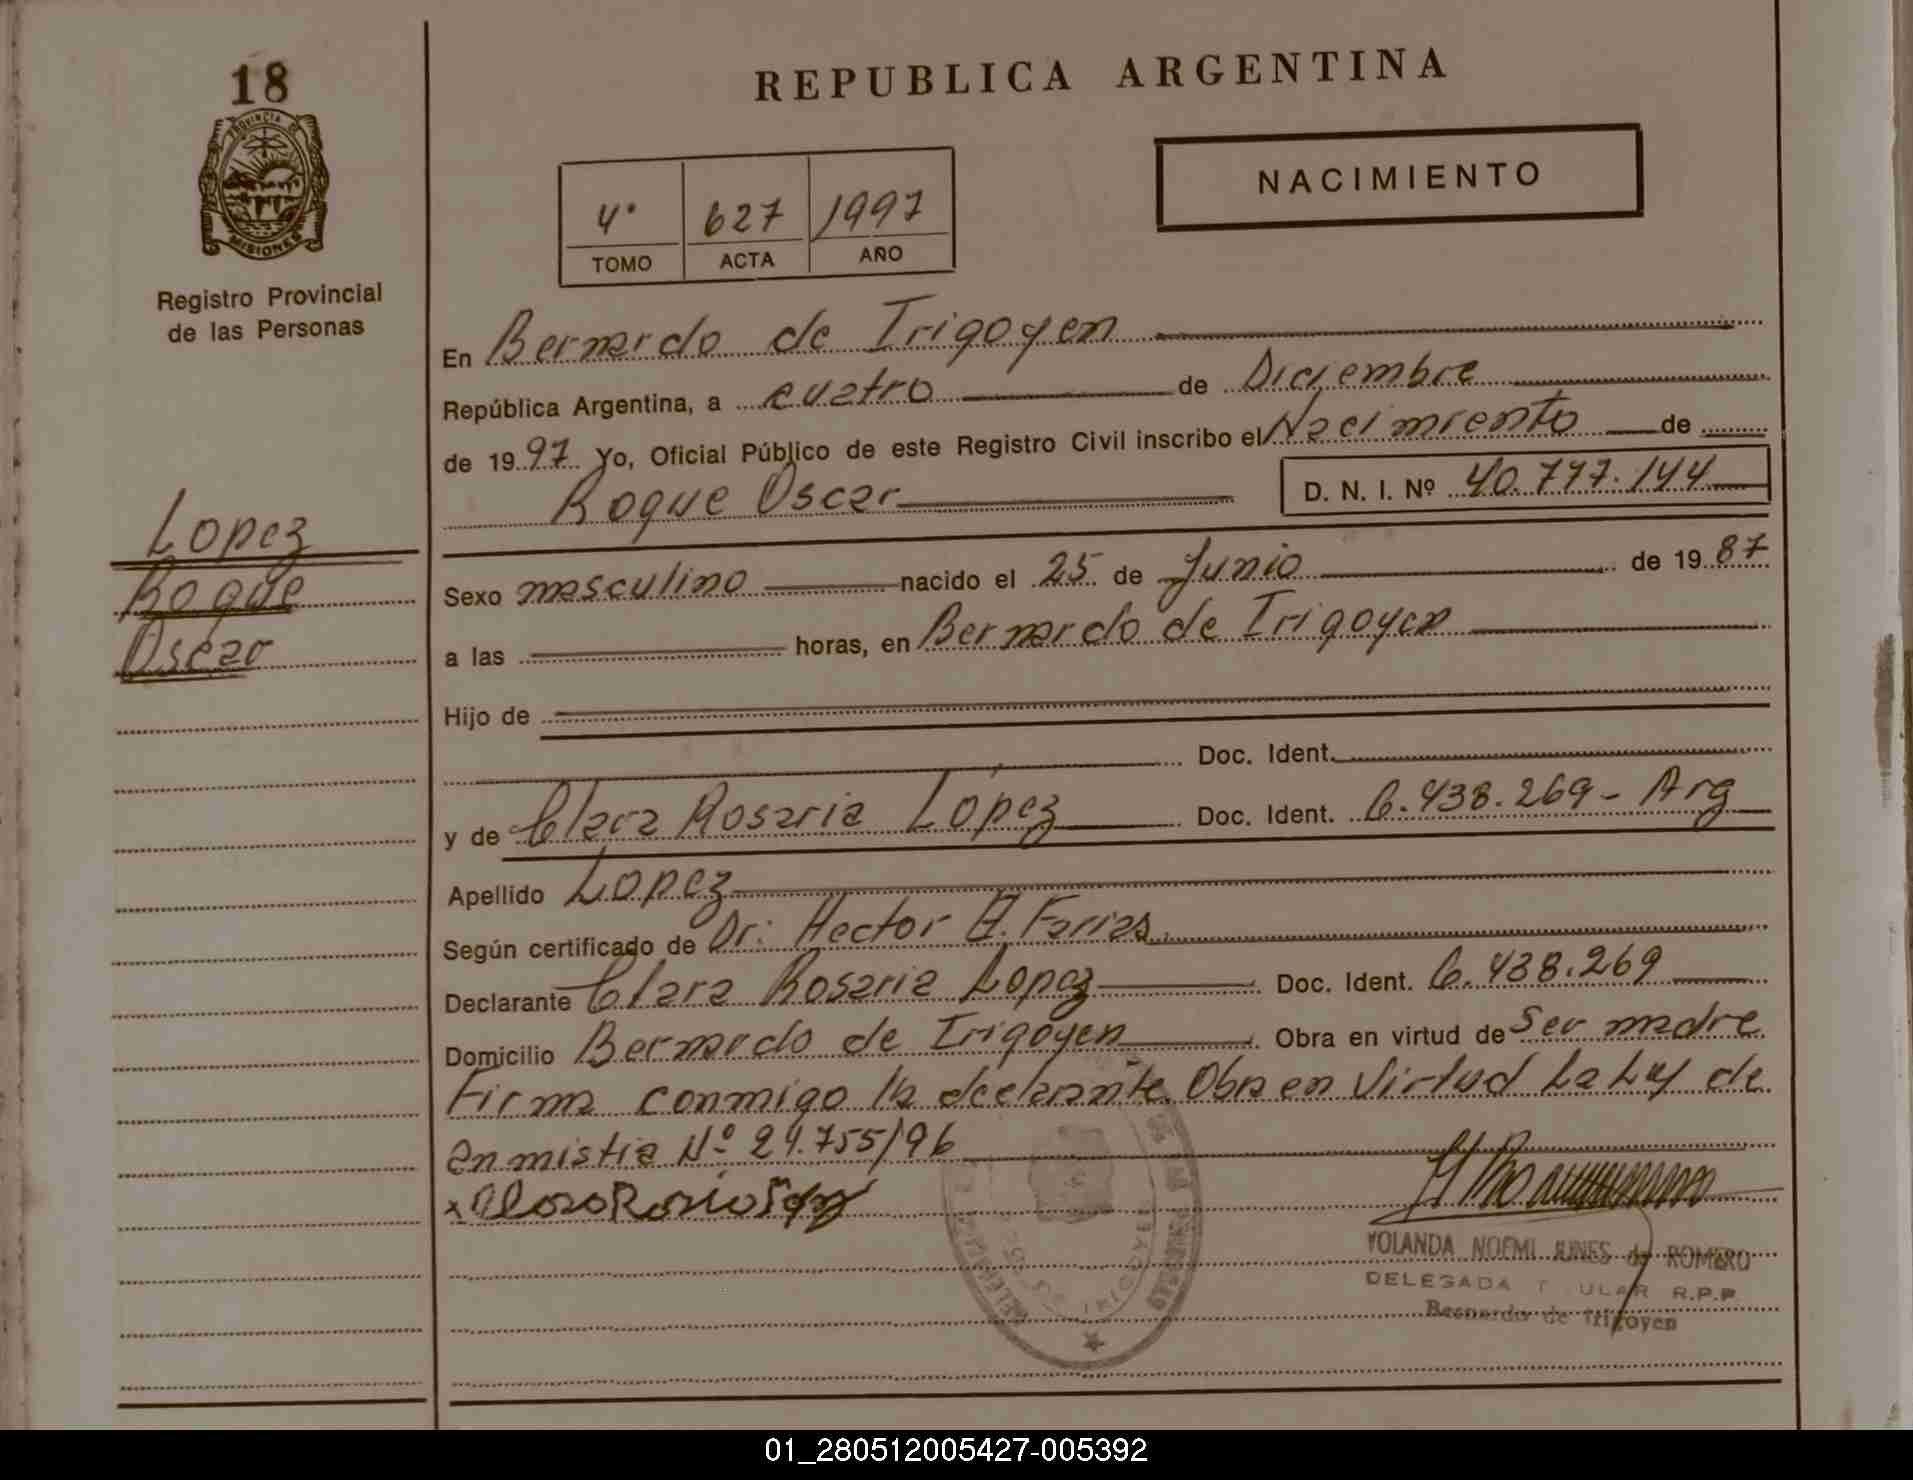 18
PROVINCIA DE
MISIONES
Registro Provincial
de las Personas
Lopez
Roque
Oscar
REPUBLICA ARGENTINA
NACIMIENTO
4° 627 1997
TOMO ACTA AÑO
En Bernardo de Irigoyen
República Argentina, a cuatro de Diciembre
de 1997 Yo, Oficial Público de este Registro Civil inscribo el Nacimiento de
Roque Oscar D. N. I. Nº 40.777.144
Sexo masculino nacido el 25 de Junio de 1987
a las horas, en Bernardo de Irigoyen
Hijo de
Doc. Ident.
y de Clara Rosaria López Doc. Ident. 6.438.269 - Arg
Apellido Lopez
Según certificado de Dr: Hector A. Farias
Declarante Clara Rosaria Lopez Doc. Ident. 6.438.269
Domicilio Bernardo de Irigoyen Obra en virtud de Ser madre
Firma conmigo la declarante. Obra en Virtud La Ley de
enmistia Nº 24.755/96
YOLANDA NOEMI de ROMERO
DELEGADA R.P.P.
Bernardo de Irigoyen
01_280512005427-005392